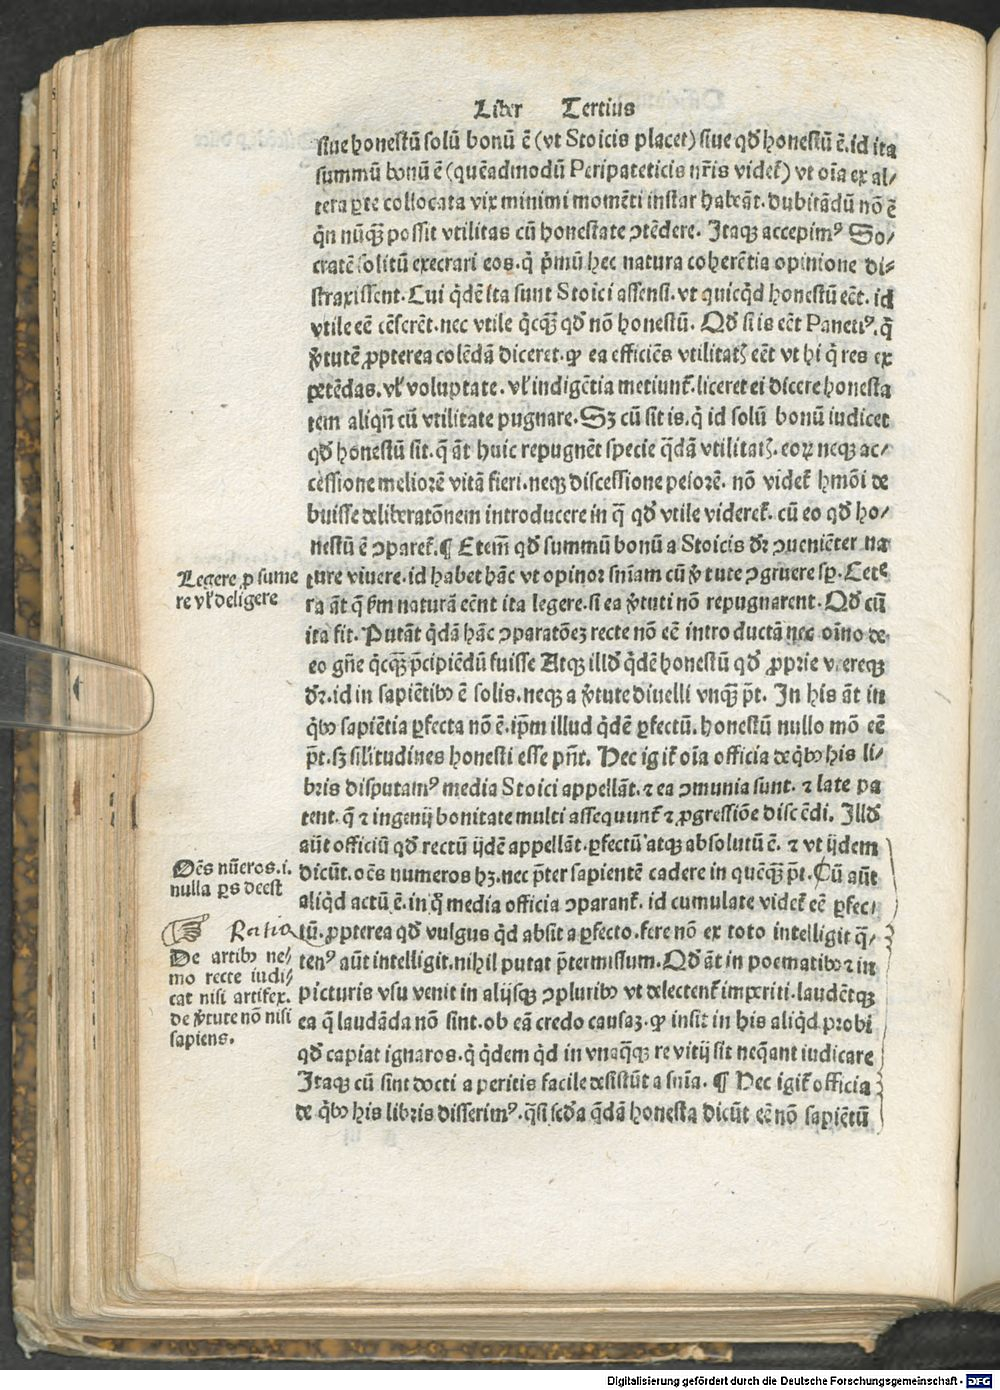 Liber Tertius
siue honestū solū bonū ē (vt Stoicis placet) siue qđ honestū ē. id ita
summū bonū ē (quēadmodū Peripateticis nr̄is videt᷑) vt oīa ex al/
tera ꝑte collocata vix minimi momēti instar habeāt. dubitādū nō ē
qn̄ nūqꝫ̄ possit vtilitas cū honestate ꝯtēdere. Itaqꝫ accepimꝰ So/
cratē solitū execrari eos. q̇ pˉmū hec natura coherētia opinione di⸗
straxissent. Cui q̇dē ita sunt Stoici assensi. vt quicq̇d honestū eēt. id
vtile eē cēserēt. nec vtile q̇cqꝫ̄ qđ nō honestū. Qđ si is eēt Panetiꝰ. q̇
v̓tutē ꝓpterea colēdā diceret. ꝙ ea efficiēs vtilitatꝭ eēt vt hi q̇ res ex
petēdas. vl̓ voluptate. vl̓ indigētia metiunt᷑. liceret ei dicere honesta
tem aliqn̄ cū vtilitate pugnare. Sꝫ cū sit is. q̇ id solū bonū iudicet
qđ honestū sit. q̄ āt huic repugnēt specie q̄dā vtilitatꝭ. eoꝝ neqꝫ ac/
cessione meliorē vitā fieri. neqꝫ discessione peiorē. nō videt᷑ hmōi de
buisse deliberatōnem introducere in q̄ qđ vtile videret᷑. cū eo qđ ho/
nestū ē ꝯparet᷑. ¶ Etem̄ qđ summū bonū a Stoicis dr̄ ꝯueniēter na
ture viuere. id habet hāc vt opinor sn̄iam cū v̓tute ꝯgruere sꝑ. Cete
ra āt q̄ ẜm naturā eēnt ita legere. si ea v̓tuti nō repugnarent. Qđ cū
ita fit. Putāt q̇dā hāc ꝯparatōeꝫ recte nō eē introductā nec oīno de
eo gn̄e q̇cqꝫ̄ pˉcipiēdū fuisse Atqꝫ illđ q̇dē honestū qđ ꝓprie vereqꝫ
dr̄. id in sapiētibꝰ ē solis. neqꝫ a v̓tute diuelli vnqꝫ̄ pˉt. In his āt in
q̇bꝰ sapiētia ꝑfecta nō ē. ip̄m illud q̇dē ꝑfectū. honestū nullo mō eē
pˉt. sꝫ silitudines honesti esse pn̄t. Hec igit᷑ oīa officia de q̇bꝰ his li⸗
bris disputamꝰ media Stoici appellāt. ⁊ ea ꝯmunia sunt. ⁊ late pa
tent. q̄ ⁊ ingenij bonitate multi assequunt᷑ ⁊ ꝓgressiōe discēdi. Illđ
aūt officiū qđ rectū ijdē appellāt. ꝑfectū atqꝫ absolutū ē. ⁊ vt ijdem
dicūt. oēs numeros hꝫ. nec pˉter sapientē cadere in quēqꝫ̄ pˉt. Cū aūt
aliq̇d actū ē. in q̇ media officia ꝯparant᷑. id cumulate videt᷑ eē ꝑfec⸗
tū. ꝓpterea qđ vulgus q̇d absit a ꝑfecto. fere nō ex toto intelligit q̄⸗
tenꝰ aūt intelligit. nihil putat pˉtermissum. Qđ āt in poematibꝰ ⁊ in
picturis vsu venit in alijsqꝫ ꝯpluribꝰ vt delectent᷑ imperiti. laudētqꝫ
ea q̄ laudāda nō sint. ob eā credo causaꝫ. ꝙ insit in his aliq̇d probi
qđ capiat ignaros. q̇ q̇dem q̇d in vnaqꝫ̄qꝫ re vitij sit neq̄ant iudicare
Itaqꝫ cū sint docti a peritis facile desistūt a sn̄ia. ¶ Hec igit᷑ officia
de q̇bꝰ his libris disserimꝰ. q̄si scđa q̄dā honesta dicūt eē nō sapiētū
Legere ꝓ sume
re vl̓ deligere
Oēs nūeros. i.
nulla ꝑs deest
Ratio
De artibꝰ ne⸗
mo recte iudi⸗
cat nisi artifex.
de v̓tute nō nisi
sapiens.
Digitalisierung gefördert durch die Deutsche Forschungsgemeinschaft - DFG